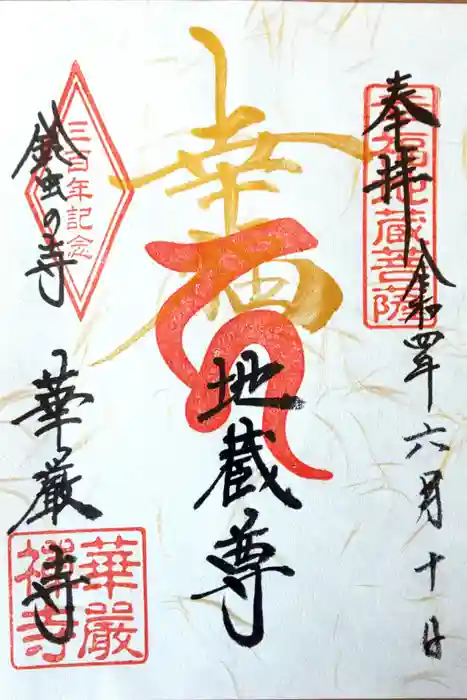 奉拝
幸福地蔵菩薩
令和四年六月十日
幸福
地蔵尊
三百年記念
鈴虫の寺
華厳寺
華嚴禅寺